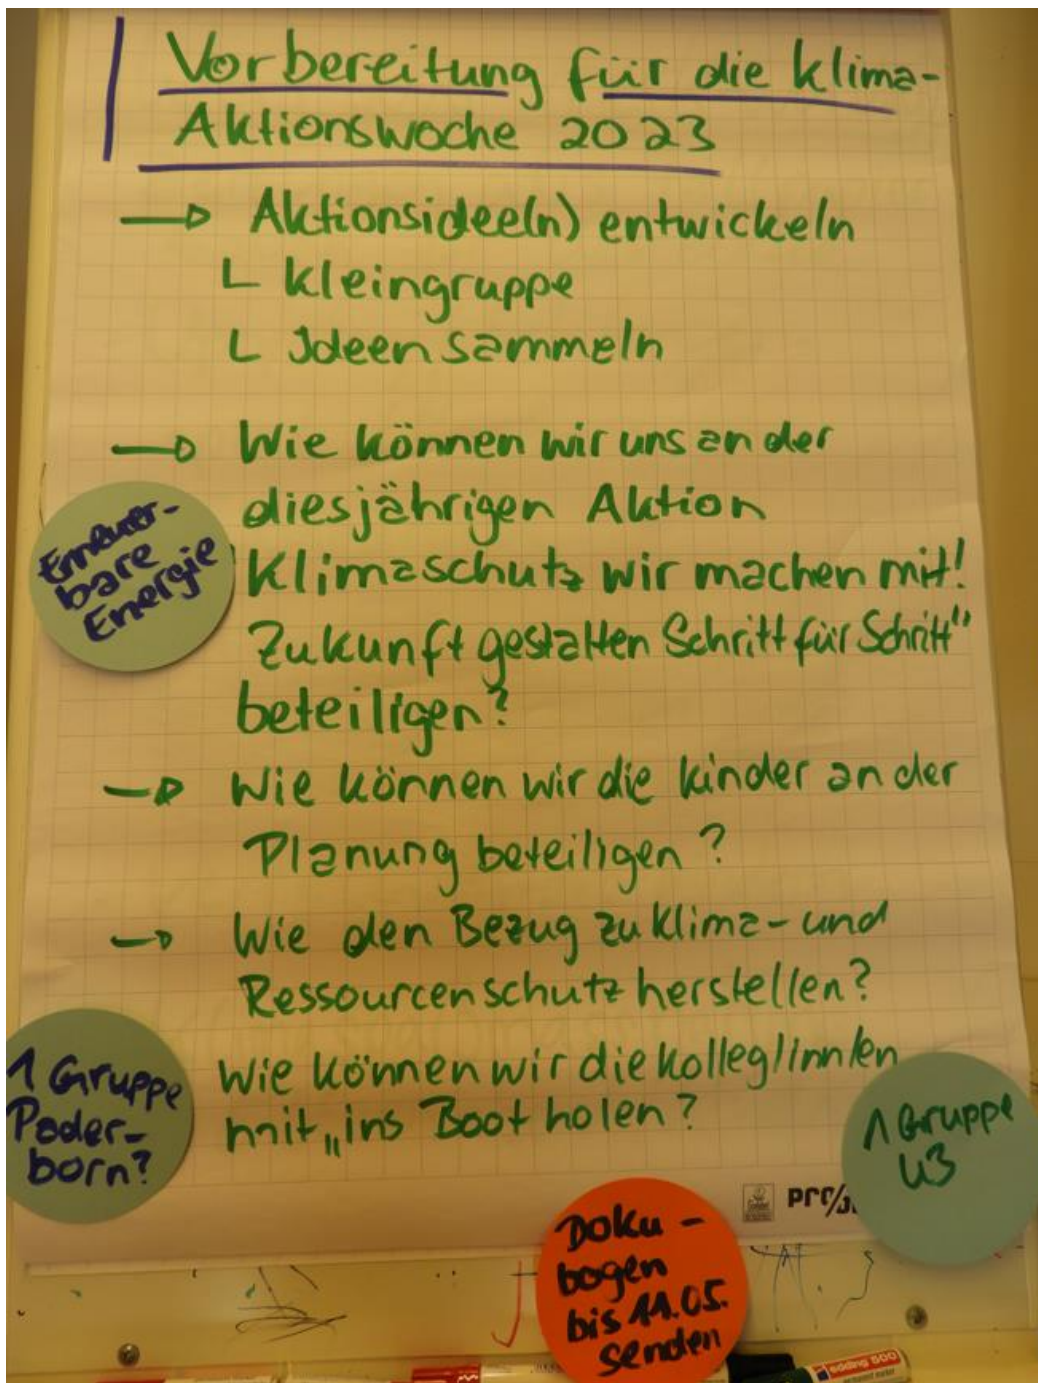 Vorbereitung für die Klima-
Aktionswoche 2023
→ Aktionsidee(n) entwickeln
L Kleingruppe
L Ideen sammeln
→ Wie können wir uns an der
diesjährigen Aktion
Klimaschutz wir machen mit!
Zukunft gestalten Schritt für Schritt"
beteiligen?
Erneuer-
bare
Energie
→ Wie können wir die Kinder an der
Planung beteiligen?
→ Wie den Bezug zu Klima- und
Ressourcenschutz herstellen?
Wie können wir die Kolleg/inn/en
mit „ins Boot holen?
1 Gruppe
Pader-
born?
1 Gruppe
U3
Doku-
bogen
bis 11.05.
senden
edding 500